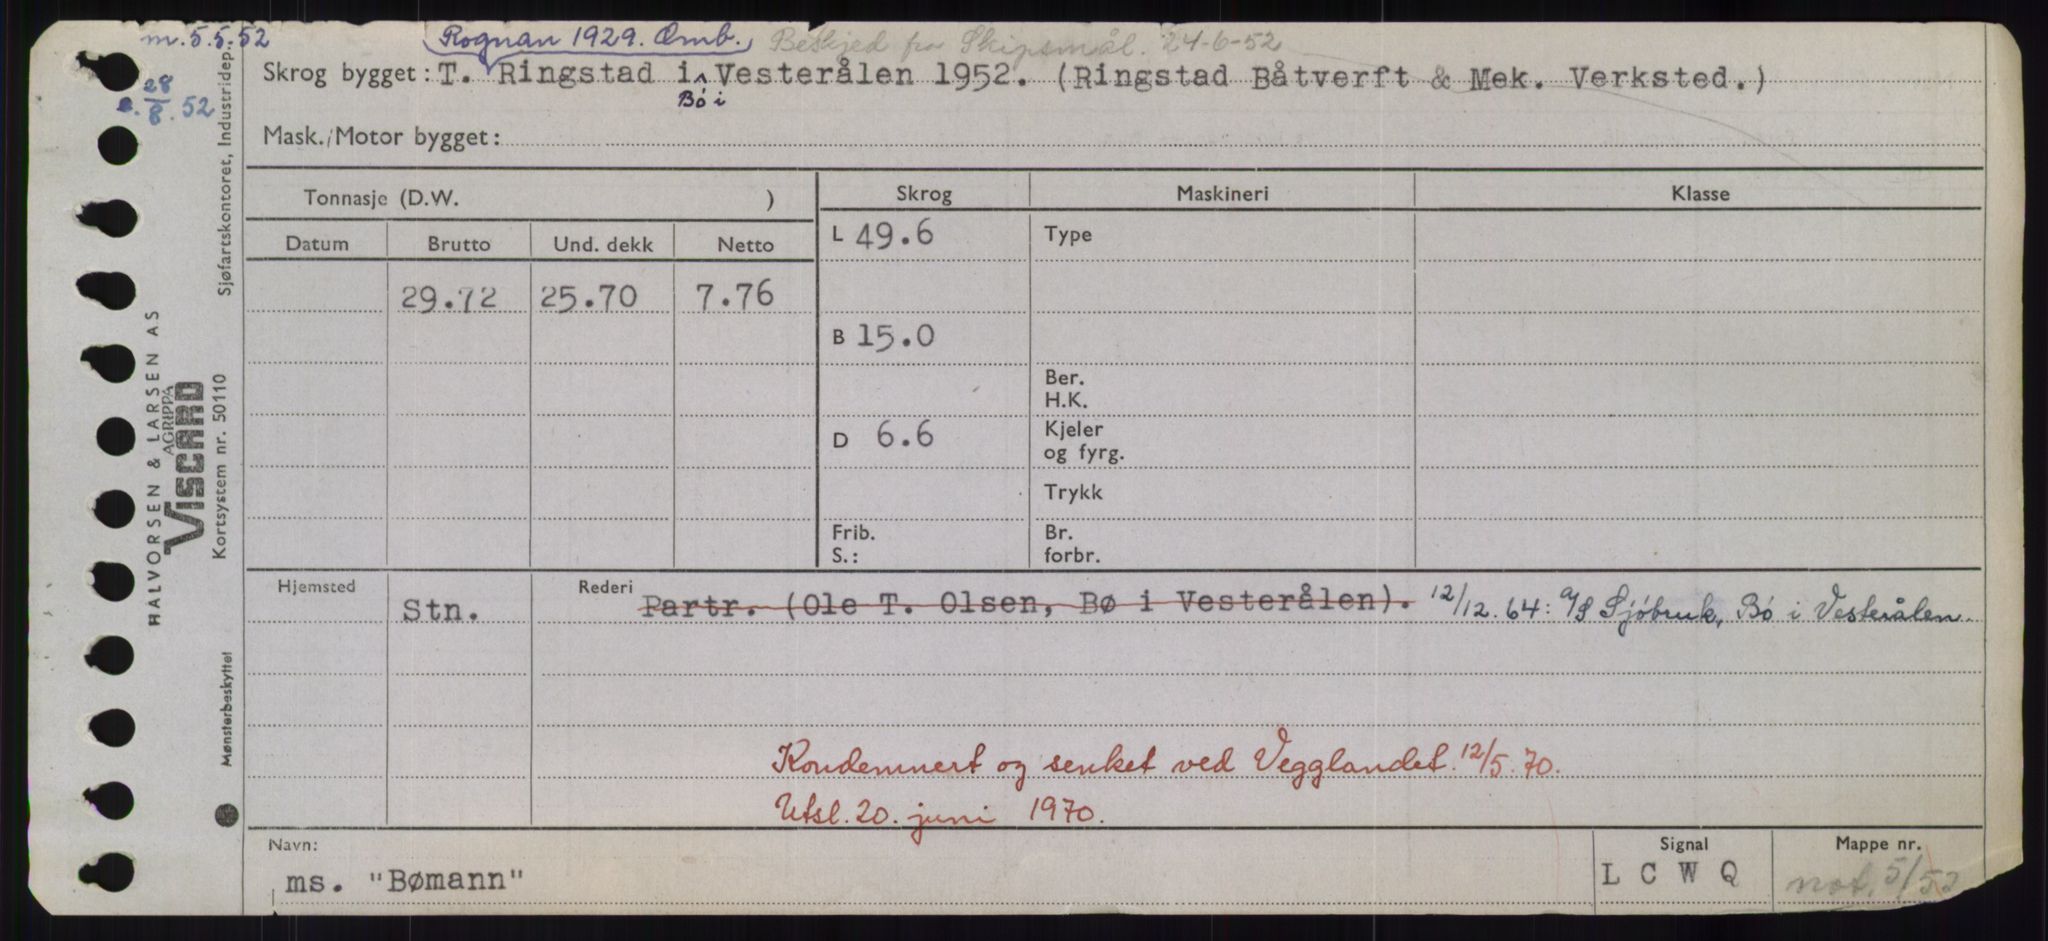 m. 5.5.52
Rognan 1929. Omb. Beskjed fra Skipsmål. 24-6-52
Skrog bygget: T. Ringstad i Vesterålen 1952. (Ringstad Båtverft & Mek. Verksted.)
Bö i
e. 28/8. 52
Mask./Motor bygget:
Tonnasje (D.W. ) Skrog Maskineri Klasse
Datum Brutto Und. dekk Netto L 49.6 Type
29.72 25.70 7.76
B 15.0
Ber.
H.K.
D 6.6 Kjeler
og fyrg.
Trykk
Frib. Br.
S.: forbr.
Hjemsted Rederi
Stn. Partr. (Ole T. Olsen, Bø i Vesterålen). 12/12. 64: A/S Sjöbruk, Bö i Vesterålen.
Kondemnert og senket ved Vegglandet. 12/5. 70.
Utsl. 20. juni 1970.
Navn: Signal Mappe nr.
ms. "Bømann" L C W Q not. 5/52
HALVORSEN & LARSEN AS
AGRIPPA
VISCARD
Kortsystem nr. 50110
Sjøfartskontoret, Industridep.
Mønsterbeskyttet